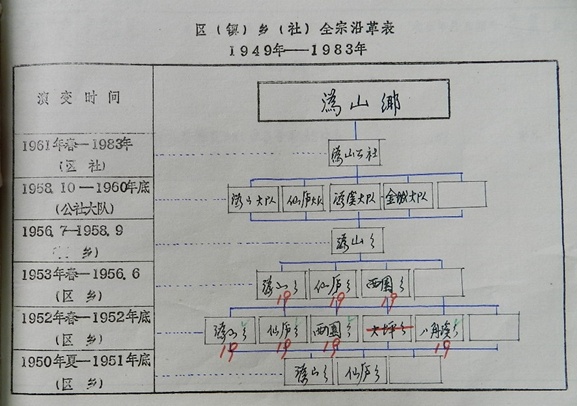 区（镇）乡（社）全宗沿革表
1949年——1983年
演变时间
溈山鄉
1961年春—1983年
（区 社）
溈山公社
1958.10—1960年底
（公社大队）
溈山大队 仙庐大队 大队 大队
1956.7—1958.9
乡）
溈山乡
1953年春—1956.6
（区 乡）
溈山乡 仙庐乡 西圆乡
19 19 19
1952年春—1952年底
（区 乡）
溈山乡 仙庐乡 西圆乡 大坪乡
19 19 19 19
1950年夏—1951年底
（区 乡）
溈山乡 仙庐乡